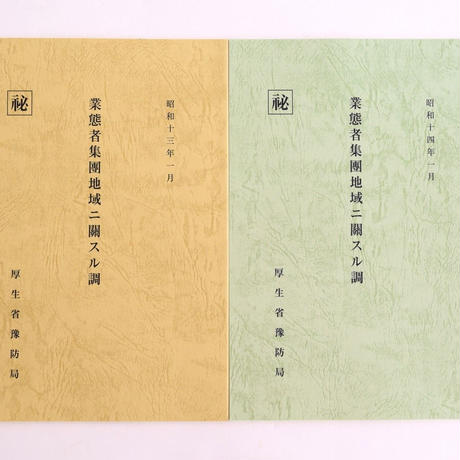 昭和十三年一月
業態者集團地域ニ關スル調
厚生省豫防局
祕
昭和十四年一月
業態者集團地域ニ關スル調
厚生省豫防局
祕